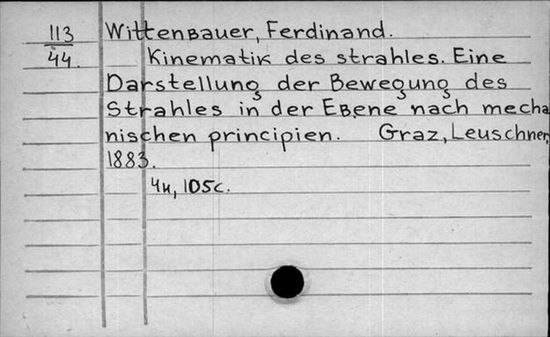 113
44.
Wittenbauer, Ferdinand.
Kinematik des strahles. Eine
Darstellung der Bewegung des
Strahles in der Ebene nach mecha
nischen principien. Graz, Leuschner,
1883.
4н, 105с.